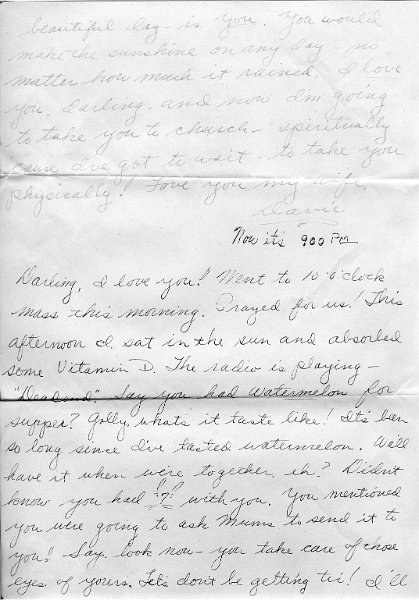 beautiful day - is you. You would
make the sunshine on any day - no
matter how much it rained. I love
you, darling, and now I'm going
to take you to church - spiritually
cause I've got to wait - to take you
physically! Love you my wife.
Davie
Now it's 900 PM
Darling, I love you! Went to 10 o'clock
mass this morning. Prayed for us! This
afternoon I sat in the sun and absorbed
some Vitamin D. The radio is playing -
Say you had watermelon for
supper? Golly whats it taste like! It's ben
so long since I've tasted watermelon. We'll
have it when we're together, eh? Didn't
know you had !?! with you. You mentioned
you were going to ask Mums to send it to
you! Say, look now - you take care of those
eyes of yours. Let's don't be getting tis! I'll